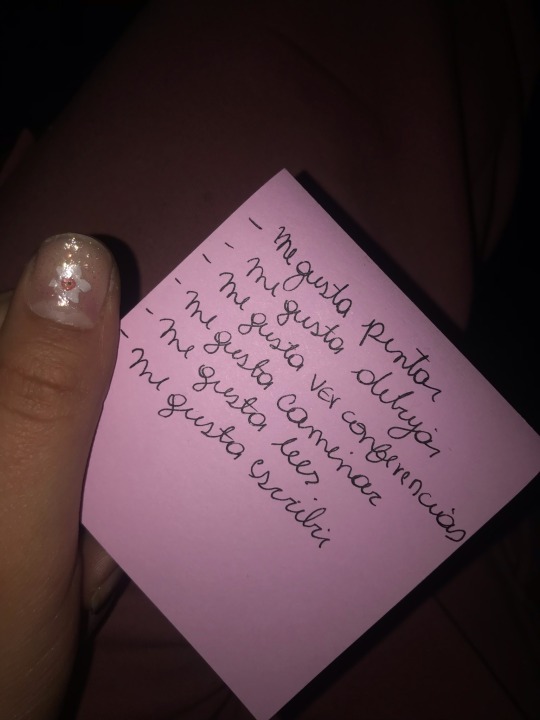 - Me gusta pintar
- Me gusta dibujar
- Me gusta ver conferencias
- Me gusta caminar
- Me gusta leer
- Me gusta escribir